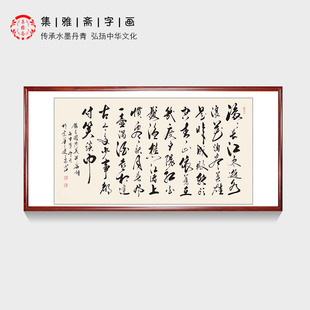 集雅斋字画
传承水墨丹青 弘扬中华文化
滚滚长江东逝水
浪花淘尽英雄
是非成败转头
空青山依旧在
几度夕阳红白
发渔樵江渚上
惯看秋月春风
一壶浊酒喜相逢
古今多少事都
付笑谈中